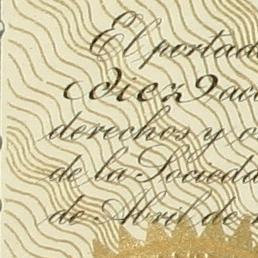 El portad
diez acc
derechos y o
de la Socieda
de Abril de